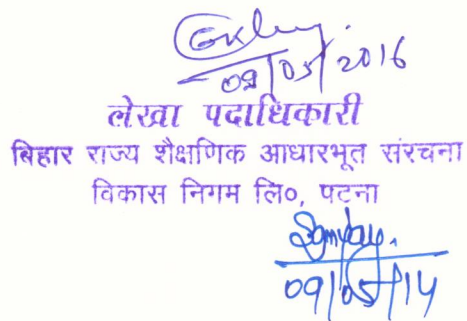 09/05/2016
लेखा पदाधिकारी
बिहार राज्य शैक्षणिक आधारभूत संरचना
विकास निगम लि०, पटना
09/05/14